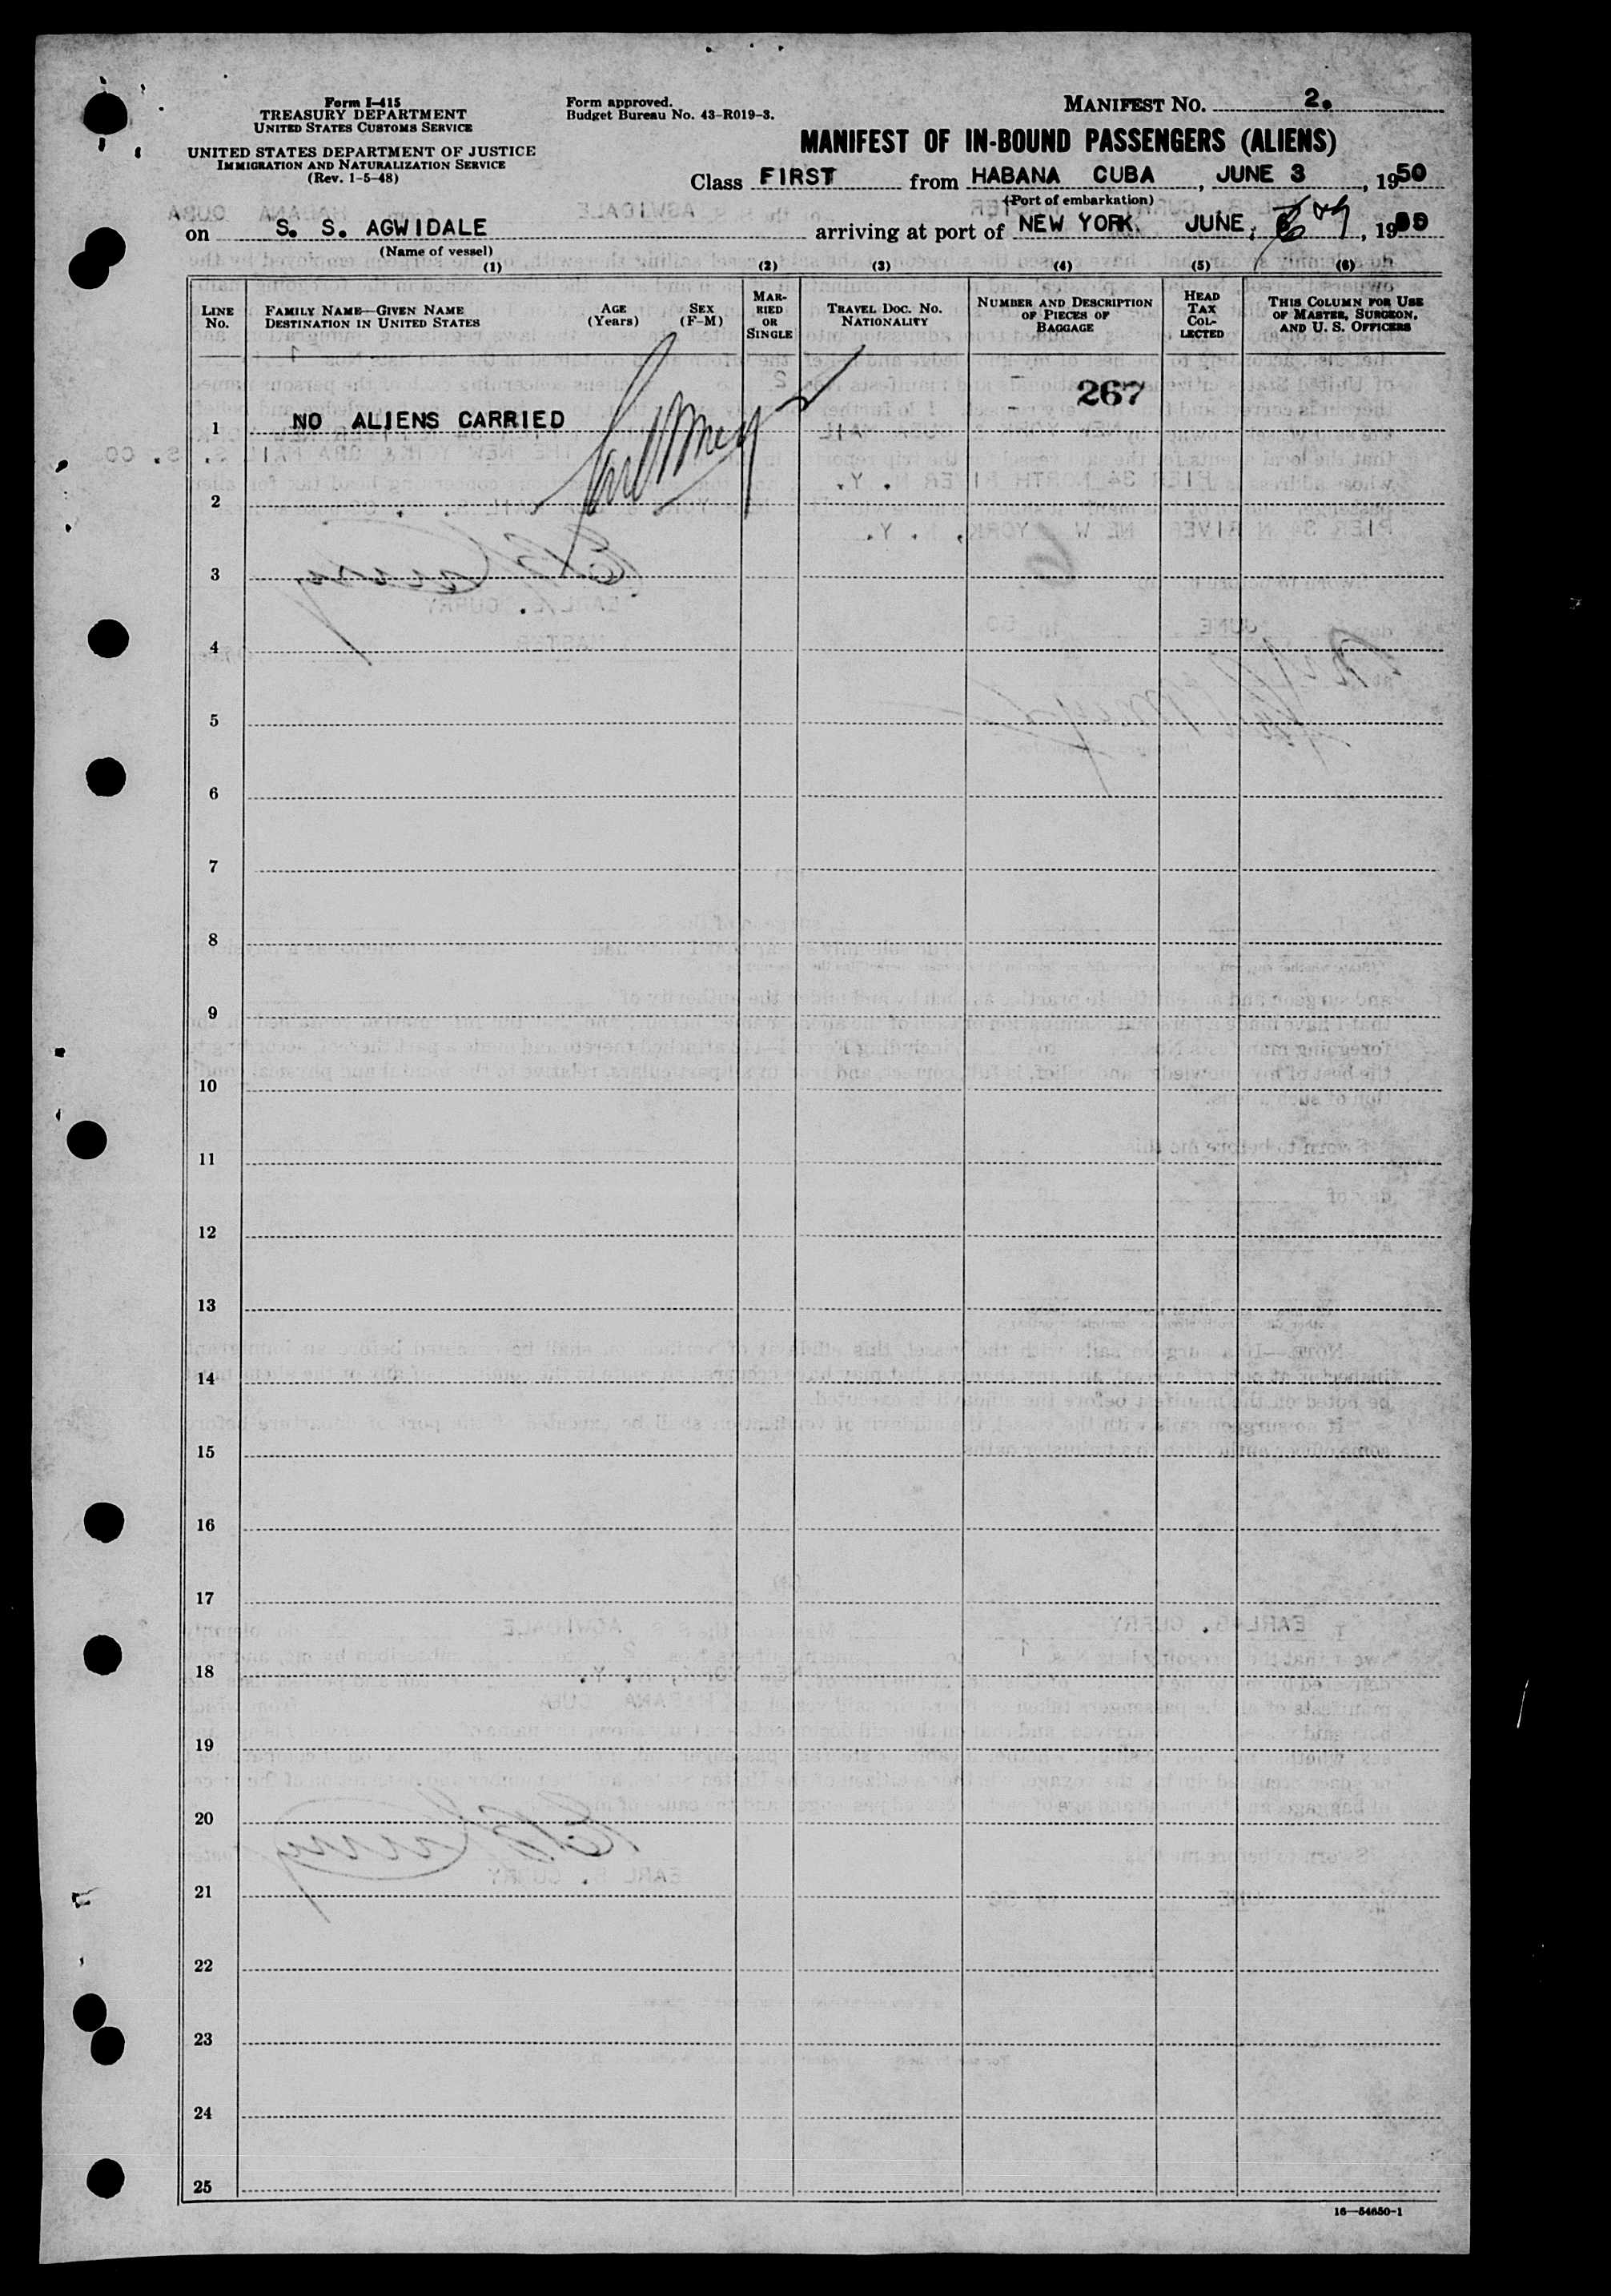 Form I-415
TREASURY DEPARTMENT
UNITED STATES CUSTOMS SERVICE
UNITED STATES DEPARTMENT OF JUSTICE
IMMIGRATION AND NATURALIZATION SERVICE
(Rev. 1-5-48)
Form approved.
Budget Bureau No. 43-R019-3.
MANIFEST NO. 2.
MANIFEST OF IN-BOUND PASSENGERS (ALIENS)
Class FIRST from HABANA CUBA, JUNE 3, 1950
(Port of embarkation)
on S. S. AGWIDALE arriving at port of NEW YORK. JUNE, 1950
(Name of vessel)
(1) (2) (3) (4) (5) (6)
LINE No.
FAMILY NAME—GIVEN NAME
DESTINATION IN UNITED STATES
AGE
(Years)
SEX
(F-M)
MAR-
RIED
OR
SINGLE
TRAVEL DOC. NO.
NATIONALITY
NUMBER AND DESCRIPTION
OF PIECES OF
BAGGAGE
HEAD
TAX
COL-
LECTED
THIS COLUMN FOR USE
OF MASTER, SURGEON,
AND U. S. OFFICERS
267
1 NO ALIENS CARRIED
2
3
4
5
6
7
8
9
10
11
12
13
14
15
16
17
18
19
20
21
22
23
24
25
16—54650-1